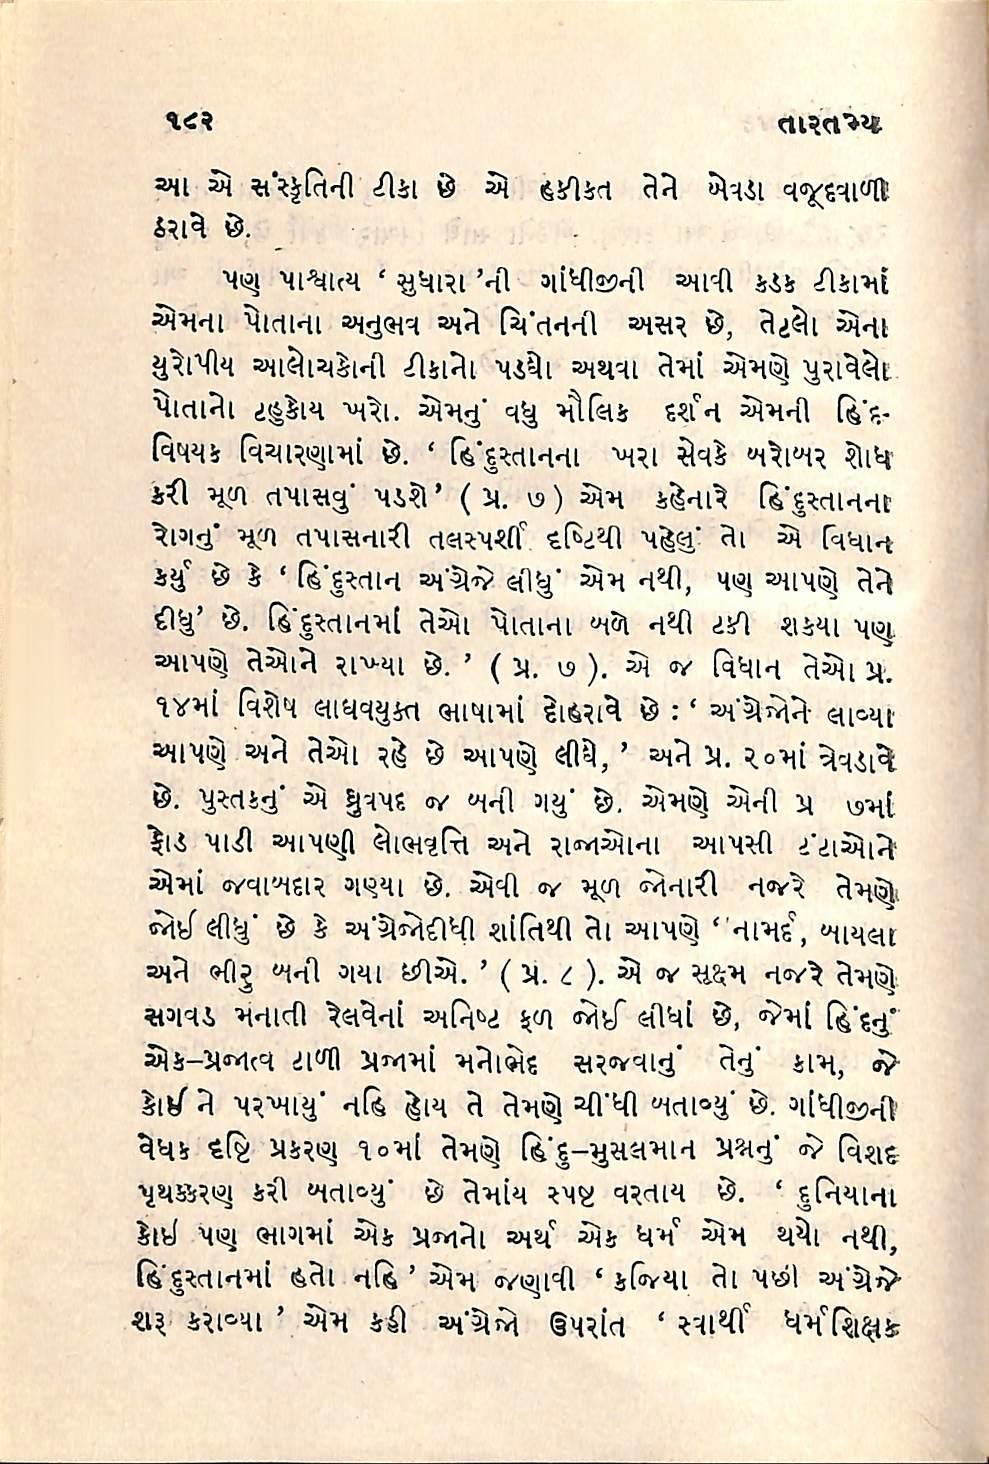 ૧૮૨ તારતમ્ય
આ એ સંસ્કૃતિની ટીકા છે એ હકીકત તેને બેવડા વજૂદવાળી
ઠરાવે છે.
પણ પાશ્ચાત્ય ‘ સુધારા ’ની ગાંધીજીની આવી કડક ટીકામાં
એમના પોતાના અનુભવ અને ચિંતનની અસર છે, તેટલો એના
યુરોપીય આલોચકોની ટીકાનો પડઘો અથવા તેમાં એમણે પુરાવેલો
પોતાનો ટહુકોય ખરો. એમનું વધુ મૌલિક દર્શન એમની હિંદ-
વિષયક વિચારણામાં છે. ‘ હિંદુસ્તાનના ખરા સેવકે બરોબર શોધ
કરી મૂળ તપાસવું પડશે’ ( પ્ર. ૭ ) એમ કહેનારે હિંદુસ્તાનના
રોગનું મૂળ તપાસનારી તલસ્પર્શી દૃષ્ટિથી પહેલું તો એ વિધાન
કર્યું છે કે ‘ હિંદુસ્તાન અંગ્રેજે લીધું એમ નથી, પણ આપણે તેને
દીધુ’ છે. હિંદુસ્તાનમાં તેઓ પોતાના બળે નથી ટકી શકયા પણ
આપણે તેઓને રાખ્યા છે. ’ ( પ્ર. ૭ ). એ જ વિધાન તેઓ પ્ર.
૧૪માં વિશેષ લાઘવયુક્ત ભાષામાં દોહરાવે છે : ‘ અંગ્રેજોને લાવ્યા
આપણે અને તેઓ રહે છે આપણે લીધે, ’ અને પ્ર. ૨૦માં ત્રેવડાવે
છે. પુસ્તકનું એ ધ્રુવપદ જ બની ગયું છે. એમણે એની પ્ર ૭માં
ફોડ પાડી આપણી લોભવૃત્તિ અને રાજાઓના આપસી ટંટાઓને
એમાં જવાબદાર ગણ્યા છે. એવી જ મૂળ જોનારી નજરે તેમણે
જોઈ લીધું છે કે અંગ્રેજોદીધી શાંતિથી તો આપણે ‘ નામર્દ, બાયલા
અને ભીરુ બની ગયા છીએ. ’ ( પ્ર. ૮ ). એ જ સૂક્ષ્મ નજરે તેમણે
સગવડ મનાતી રેલવેનાં અનિષ્ટ ફળ જોઈ લીધાં છે, જેમાં હિંદનું
એક–પ્રજાત્વ ટાળી પ્રજામાં મનોભેદ સરજવાનું તેનું કામ, જે
કોઈ ને પરખાયું નહિ હોય તે તેમણે ચીંધી બતાવ્યું છે. ગાંધીજીની
વેધક દૃષ્ટિ પ્રકરણ ૧૦માં તેમણે હિંદુ–મુસલમાન પ્રશ્નનું જે વિશદ
પૃથક્કરણ કરી બતાવ્યું છે તેમાંય સ્પષ્ટ વરતાય છે. ‘ દુનિયાના
કોઈ પણ ભાગમાં એક પ્રજાનો અર્થ એક ધર્મ એમ થયો નથી,
હિંદુસ્તાનમાં હતો નહિ’ એમ જણાવી ‘ કજિયા તો પછી અંગ્રેજે
શરૂ કરાવ્યા ’ એમ કહી અંગ્રેજો ઉપરાંત ‘ સ્વાર્થી ધર્મશિક્ષક